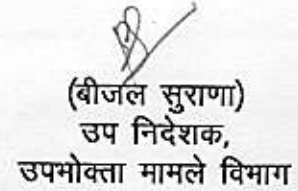 (बीजल सुराणा)
उप निदेशक,
उपभोक्ता मामले विभाग